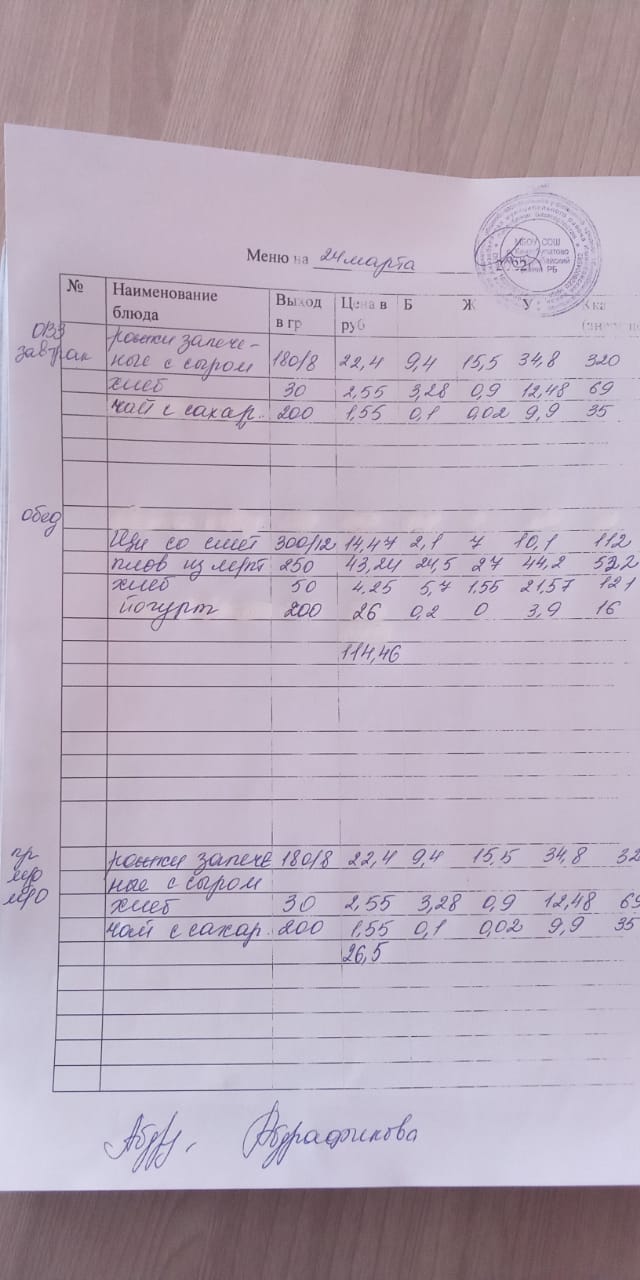 МБОУ СОШ
РБ
Меню на 24 марта
№ Наименование блюда Выход в гр Цена в руб Б Ж У Кка
ОВЗ
завтрак
рожки запече-
ные с сыром 180/8 22,4 9,4 15,5 34,8 320
хлеб 30 2,55 3,28 0,9 12,48 69
чай с сахар. 200 1,55 0,1 0,02 9,9 35
обед
Щи со смет 300/12 14,47 2,1 7 10,1 112
плов из 250 43,24 24,5 27 44,2 522
хлеб 50 4,25 5,7 1,55 21,57 121
йогурт 200 26 0,2 0 3,9 16
114,46
рожки запече 180/8 22,4 9,4 15,5 34,8 32
ные с сыром
хлеб 30 2,55 3,28 0,9 12,48 69
чай с сахар. 200 1,55 0,1 0,02 9,9 35
26,5
Абдрафикова